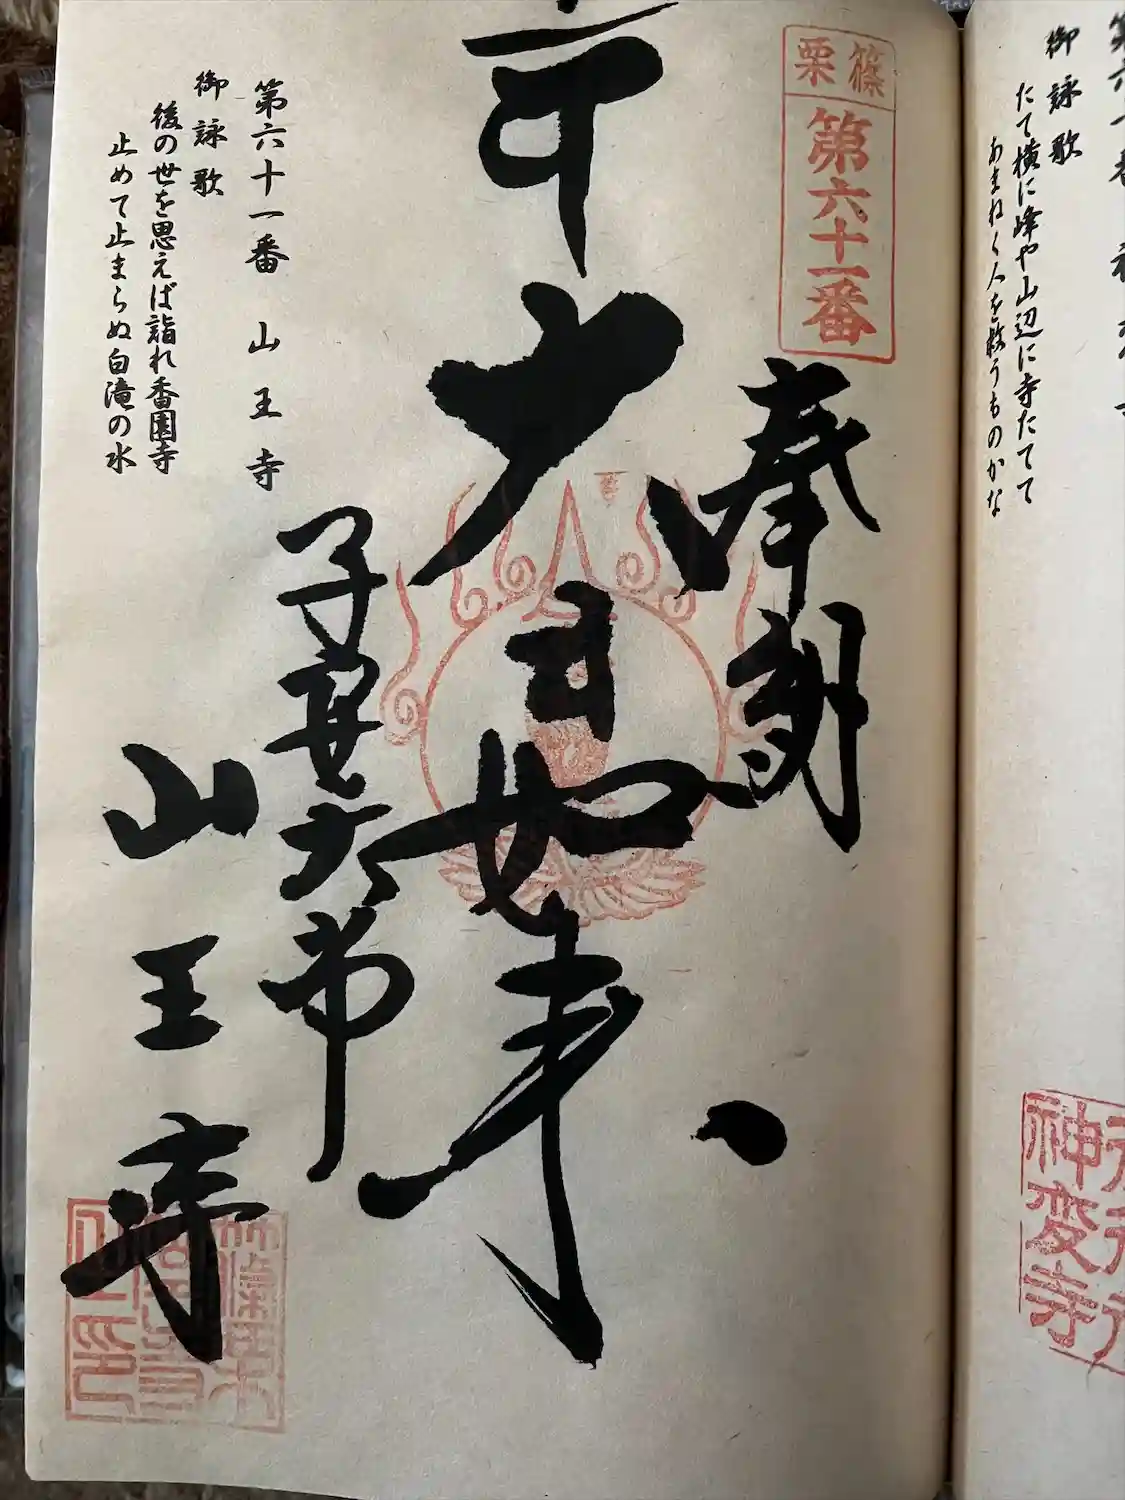 篠栗
第六十一番
奉
大日如来
第六十一番 山王寺
御詠歌
後の世を思えば詣れ香園寺
止めて止まらぬ白滝の水
子安大師
山王寺
御詠歌
たて横に峰や山辺に寺たてて
あまねく人を救うものかな
神変寺